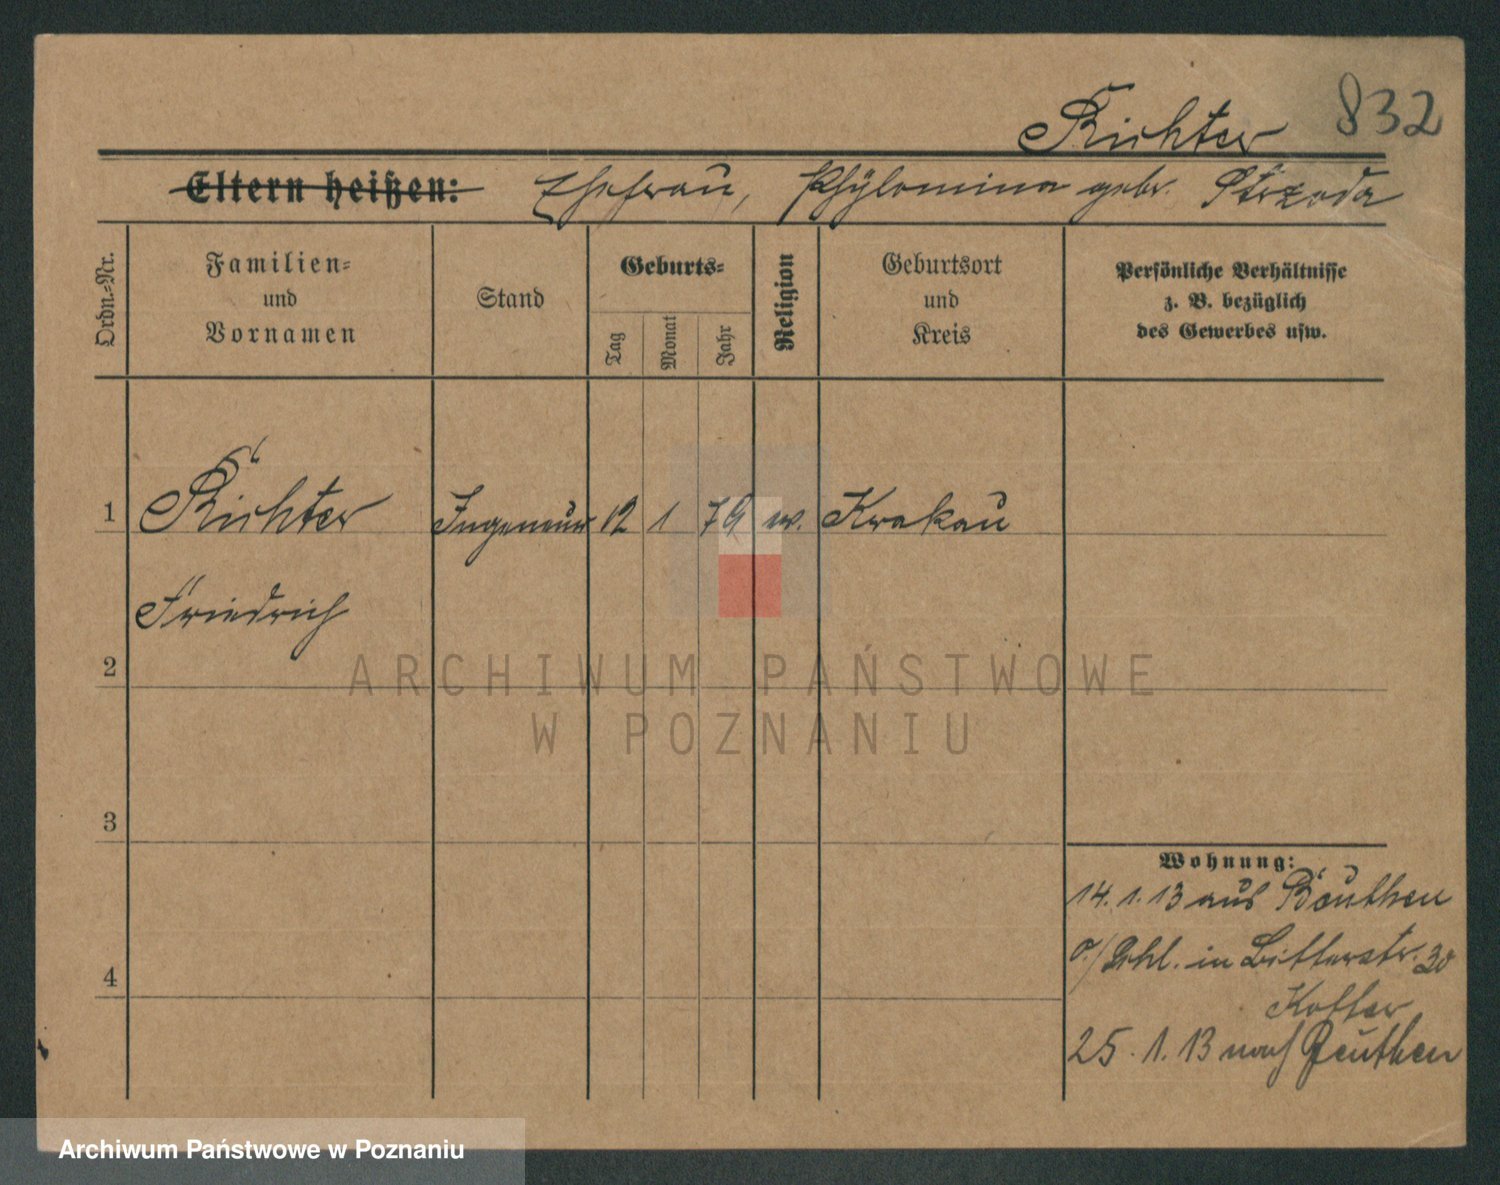 832
Richter
Eltern heißen: Ehefrau, Phylomina gebr. Strzoda
Ordn.-Nr.
Familien-
und
Vornamen
Stand
Geburts-
Tag
Monat
Jahr
Religion
Geburtsort
und
Kreis
Persönliche Verhältnisse
z. B. bezüglich
des Gewerbes usw.
1 Richter Ingeneur 12 1 79 Krakau
Friedrich
2
ARCHIWUM PAŃSTWOWE
W POZNANIU
3
4
Wohnung:
14. 1. 13 aus Beuthen
in 30
25. 1. 13 nach Beuthen
Archiwum Państwowe w Poznaniu